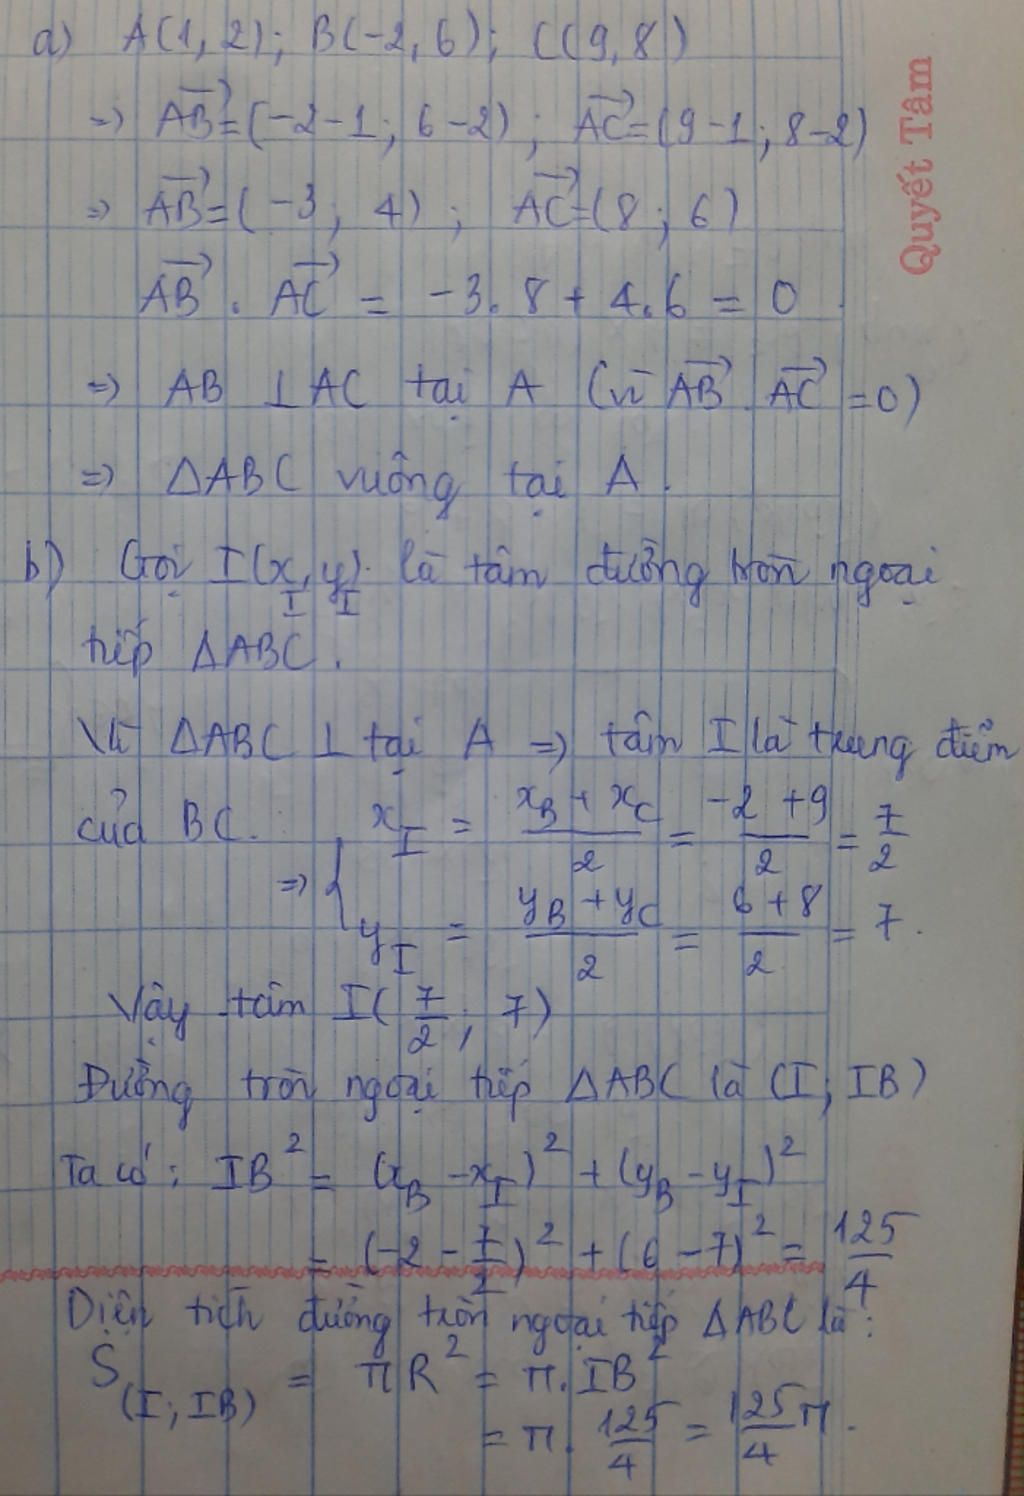 a) A(1, 2); B(-2, 6); C(9, 8)
Quyết Tâm
=> AB→ = (-2-1; 6-2); AC→ = (9-1; 8-2)
=> AB→ = (-3; 4); AC→ = (8; 6)
AB→ . AC→ = -3.8 + 4.6 = 0
=> AB ⊥ AC tại A (vì AB→ . AC→ = 0)
=> ΔABC vuông tại A.
b) Gọi I(x_I, y_I) là tâm đường tròn ngoại
tiếp ΔABC.
Vì ΔABC ⊥ tại A => tâm I là trung điểm
của BC.
=> { x_I = (x_B + x_C)/2 = (-2 + 9)/2 = 7/2
y_I = (y_B + y_C)/2 = (6 + 8)/2 = 7.
Vậy tâm I(7/2; 7)
Đường tròn ngoại tiếp ΔABC là (I; IB)
Ta có: IB² = (x_B - x_I)² + (y_B - y_I)²
= (-2 - 7/2)² + (6 - 7)² = 125/4
Diện tích đường tròn ngoại tiếp ΔABC là:
S_(I; IB) = πR² = π.IB²
= π. 125/4 = 125/4 π.